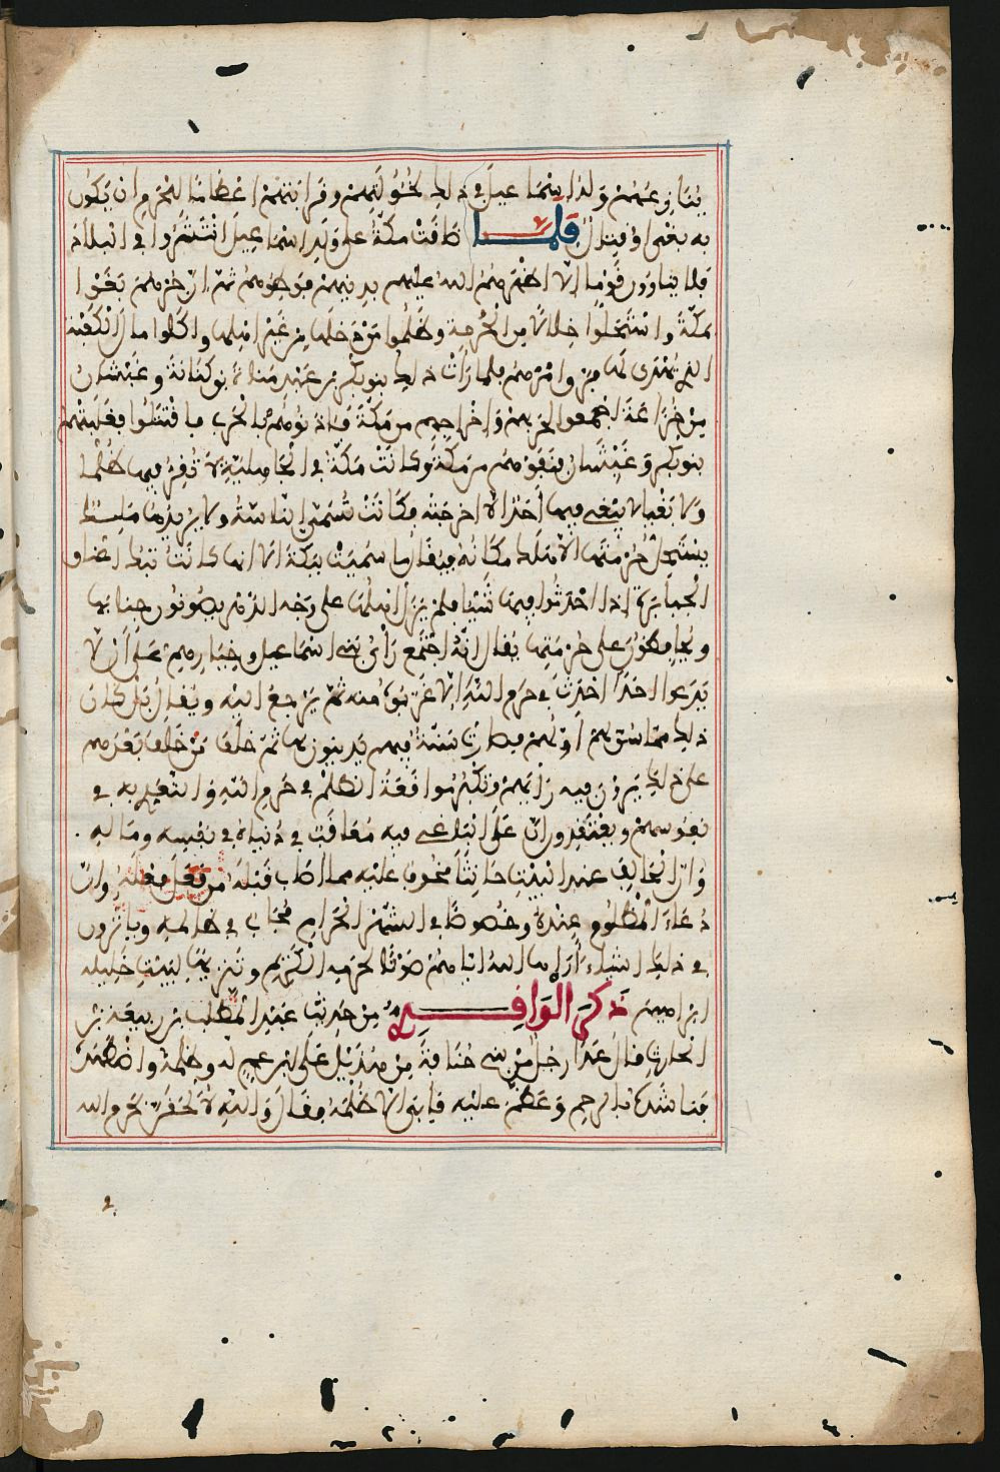 ينازعهم ولد إسماعيل في ذلك لخئولتهم وقرابتهم إعظاما للحرم ان يكون
به بغي او قتال فلما ضاقت مكة على ولد اسماعيل انتشروا في البلاد
فلا يناوون قوما الا اظهرهم الله عليهم بدينهم فوطئوهم ثم ان جرهم بغوا
بمكة واستحلوا خلالا من الحرمة وظلموا من دخلها من غير اهلها واكلوا مال الكعبة
الذي يهدى لها فرق امرهم فلما رأت ذلك بنو بكر بن عبد مناة بن كنانة وغبشان
من خزاعة اجمعوا لحربهم واخراجهم من مكة فاذنوهم بالحرب فاقتتلوا فغلبتهم
بنو بكر وغبشان فنفوهم من مكة وكانت مكة في الجاهلية لا تقر فيها ظلما
ولا بغيا لا يبغي فيها احد الا اخرجته فكانت تسمى الناسة ولا يريدها ملك
يستحل حرمتها الا هلك مكانه فيقال ما سميت ببكة الا انها كانت تبك اعناق
الجبابرة إذا احدثوا فيها شيئا فلم يزل البلد على وجه الدهر يصونون جنابها
ويحافظون على حرمتها يقال انه اجتمع رأي بني اسماعيل وخيارهم على أن لا
يدعوا احدا احدث في حرم الله الا غربوه منه ثم لا يرجع اليه ويقال بل كان
ذلك مما سنه لهم أولهم فصارت سنة فيهم يدينون بها ثم خلف من خلف بعدهم
على ذلك يرون فيه رأيهم وتكبر مواقعة الظلم في حرم الله والتعدي به في
نفوسهم ويعتقدون ان على الباغي فيه معاقبة في دنياه في نفسه وماله
وان الحالف عند البيت حانثا مخوف عليه مما اصاب قبله من فعل فعله وان
دعاء المظلوم عنده وخصوصا في الشهر الحرام مجاب في ظالمه وياثرون
في ذلك اشياء أراها الله اياهم صونا لحرمه الكريم وتنزيها لبيت خليله
ابراهيم ذكر الواقدي من حديث عبد المطلب بن ربيعة بن
الحارث قال عدا رجل من بني كنانة من هذيل على ابن عم له وظلمه واضطهده
فناشده بالرحم وعظم عليه فأبى الا ظلمه فقال والله لألحقن بحرم الله
في